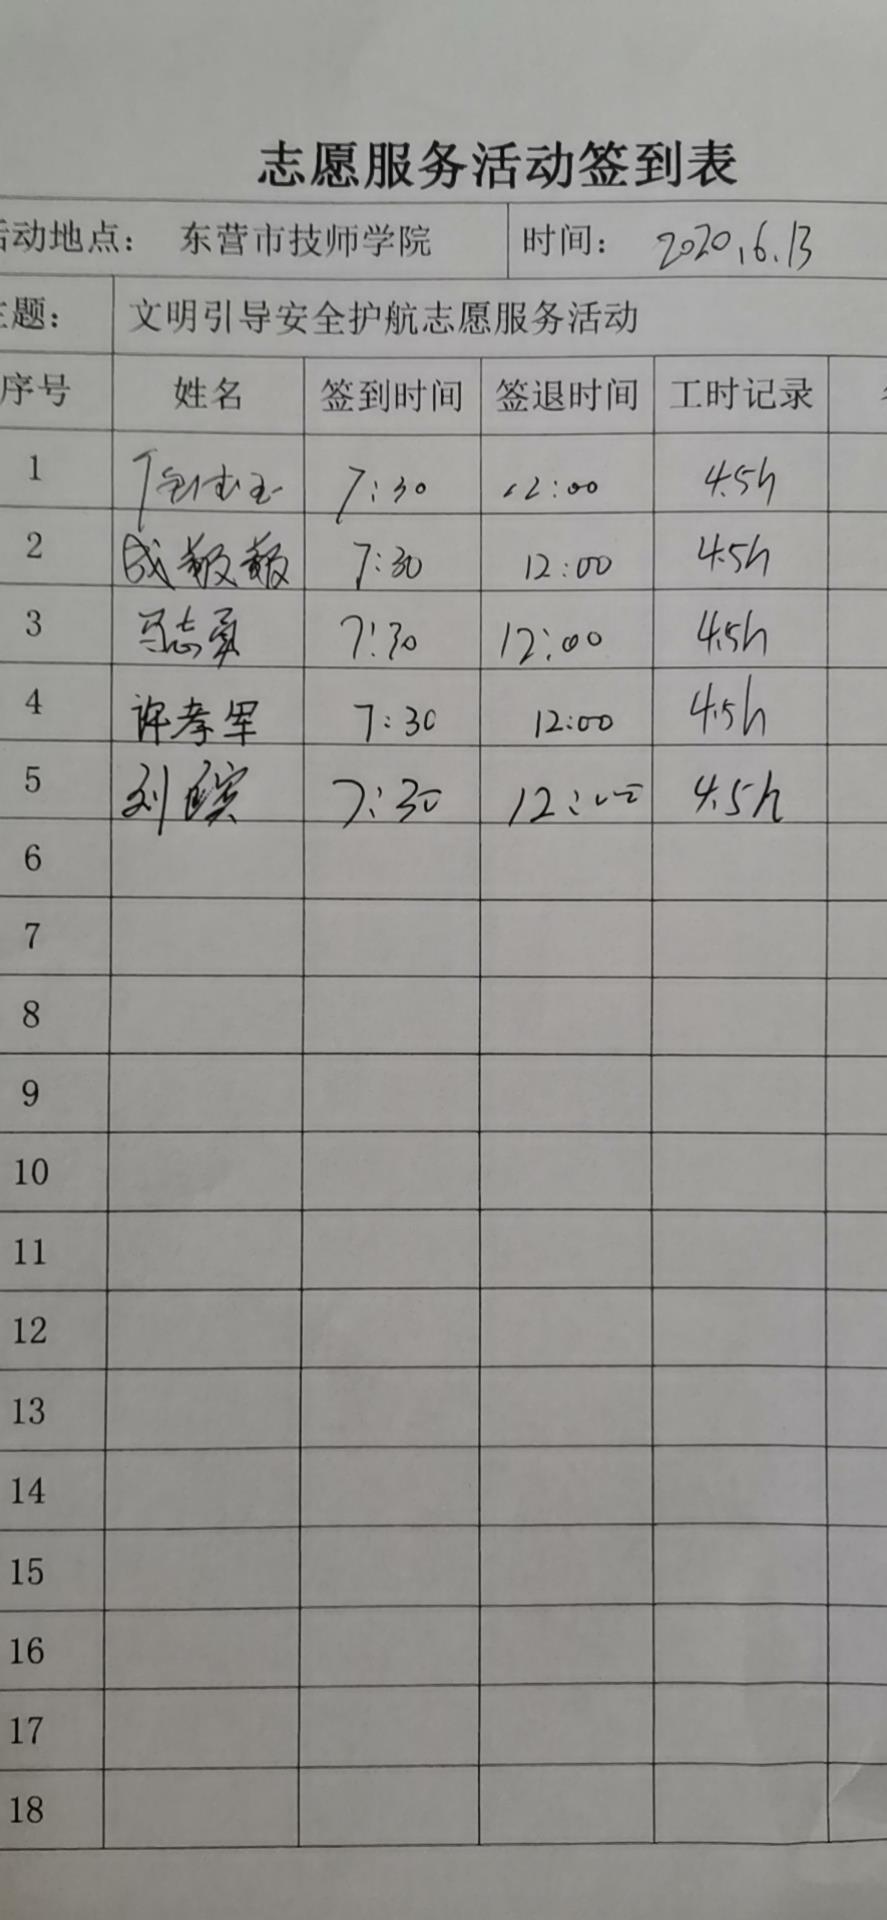 志愿服务活动签到表
活动地点： 东营市技师学院 时间： 2020.6.13
主题： 文明引导安全护航志愿服务活动
序号 姓名 签到时间 签退时间 工时记录
1 7:30 12:00 4.5h
2 成敏敏 7:30 12:00 4.5h
3 马志勇 7:30 12:00 4.5h
4 许孝军 7:30 12:00 4.5h
5 刘 7:30 12:00 4.5h
6
7
8
9
10
11
12
13
14
15
16
17
18